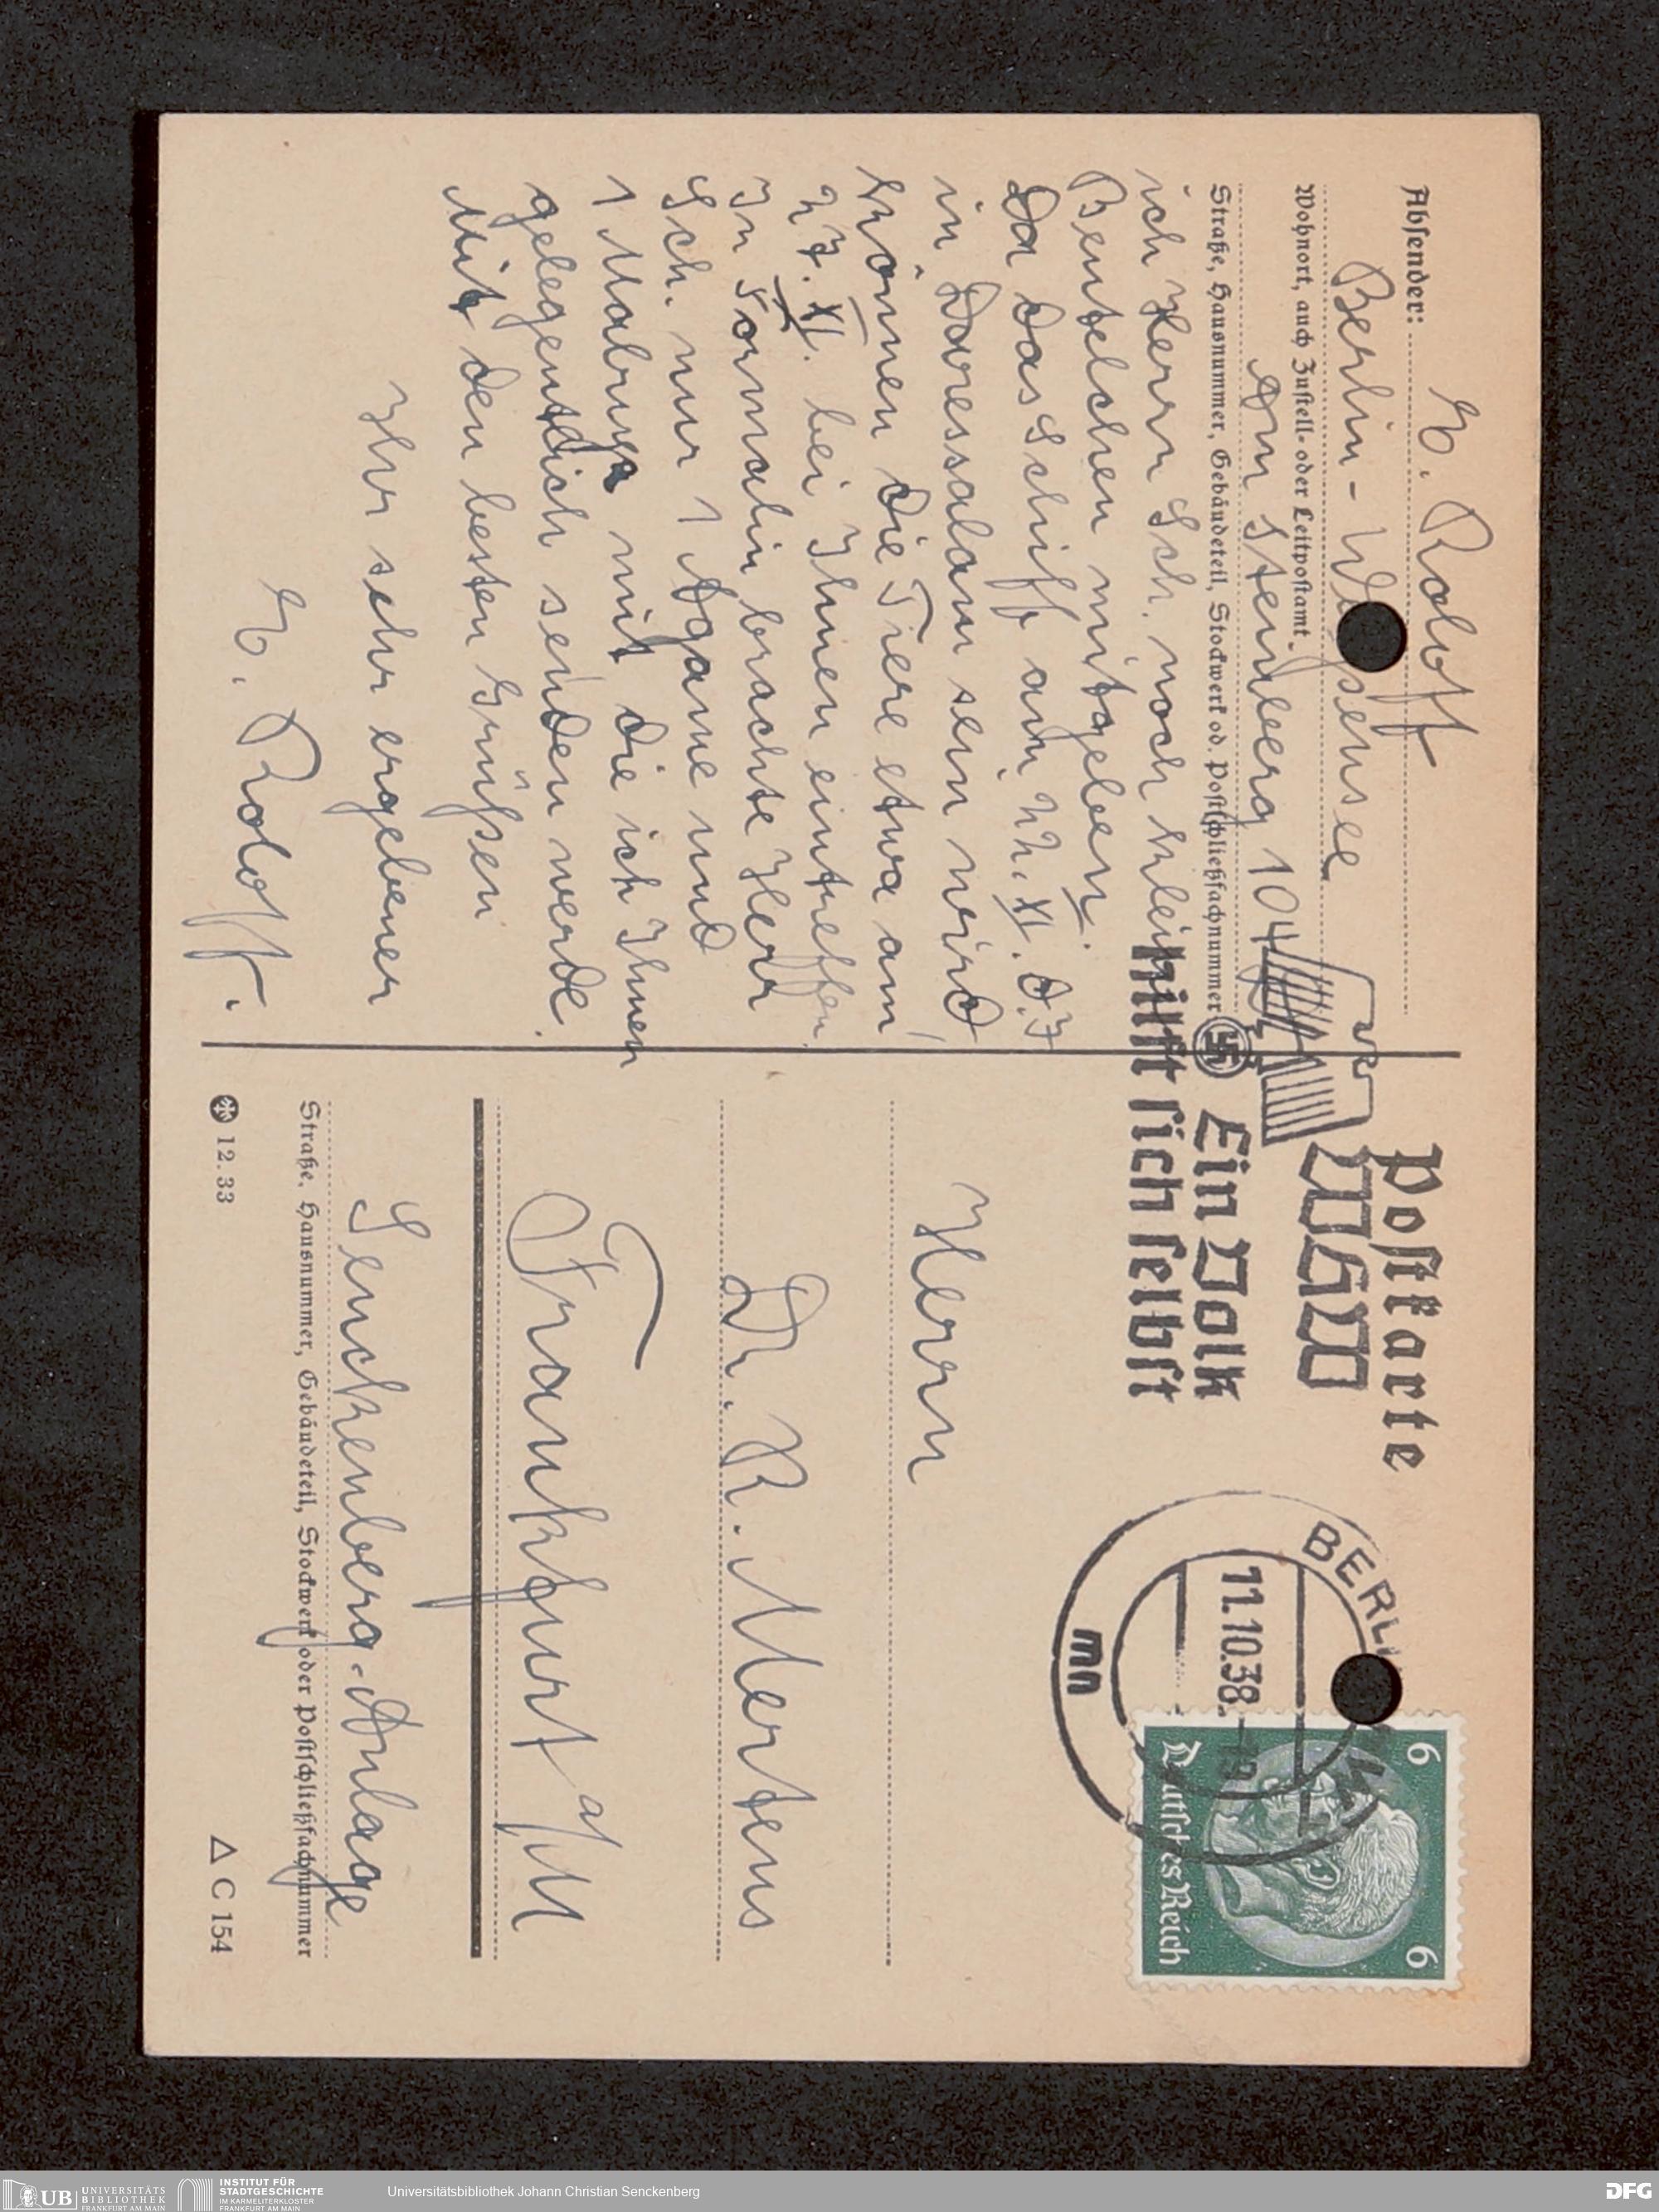 Absender: E. Roloff
Berlin-
Wohnort, auch Zustell- oder Leitpostamt
Am Steinberg 104
Straße, Hausnummer, Gebäudeteil, Stockwerk od. Postschließfachnummer
ich Herrn Sch. noch
Beutelchen mitgeben.
Da das Schiff am 22. XI. d. J
in Daressalam sein wird,
können die Tiere etwa am
27. XI. bei Ihnen eintreffen.
In Formalin brachte Herr
Sch. nur 1 Agame und
1 Mabuya mit die ich Ihnen
gelegentlich senden werde.
Mit den besten Grüßen
Ihr sehr ergebener
E. Roloff.
Postkarte
WHW
Ein Volk
hilft sich selbst
BERLIN
11.10.38.
mn
6 6
Deutsches Reich
Herrn
Dr. R. Mertens
Frankfurt a/M
Senckenberg-Anlage
Straße, Hausnummer, Gebäudeteil, Stockwerk oder Postschließfachnummer
12. 33
△ C 154
UB UNIVERSITÄTS
BIBLIOTHEK
FRANKFURT AM MAIN
INSTITUT FÜR
STADTGESCHICHTE
IM KARMELITERKLOSTER
FRANKFURT AM MAIN
Universitätsbibliothek Johann Christian Senckenberg
DFG